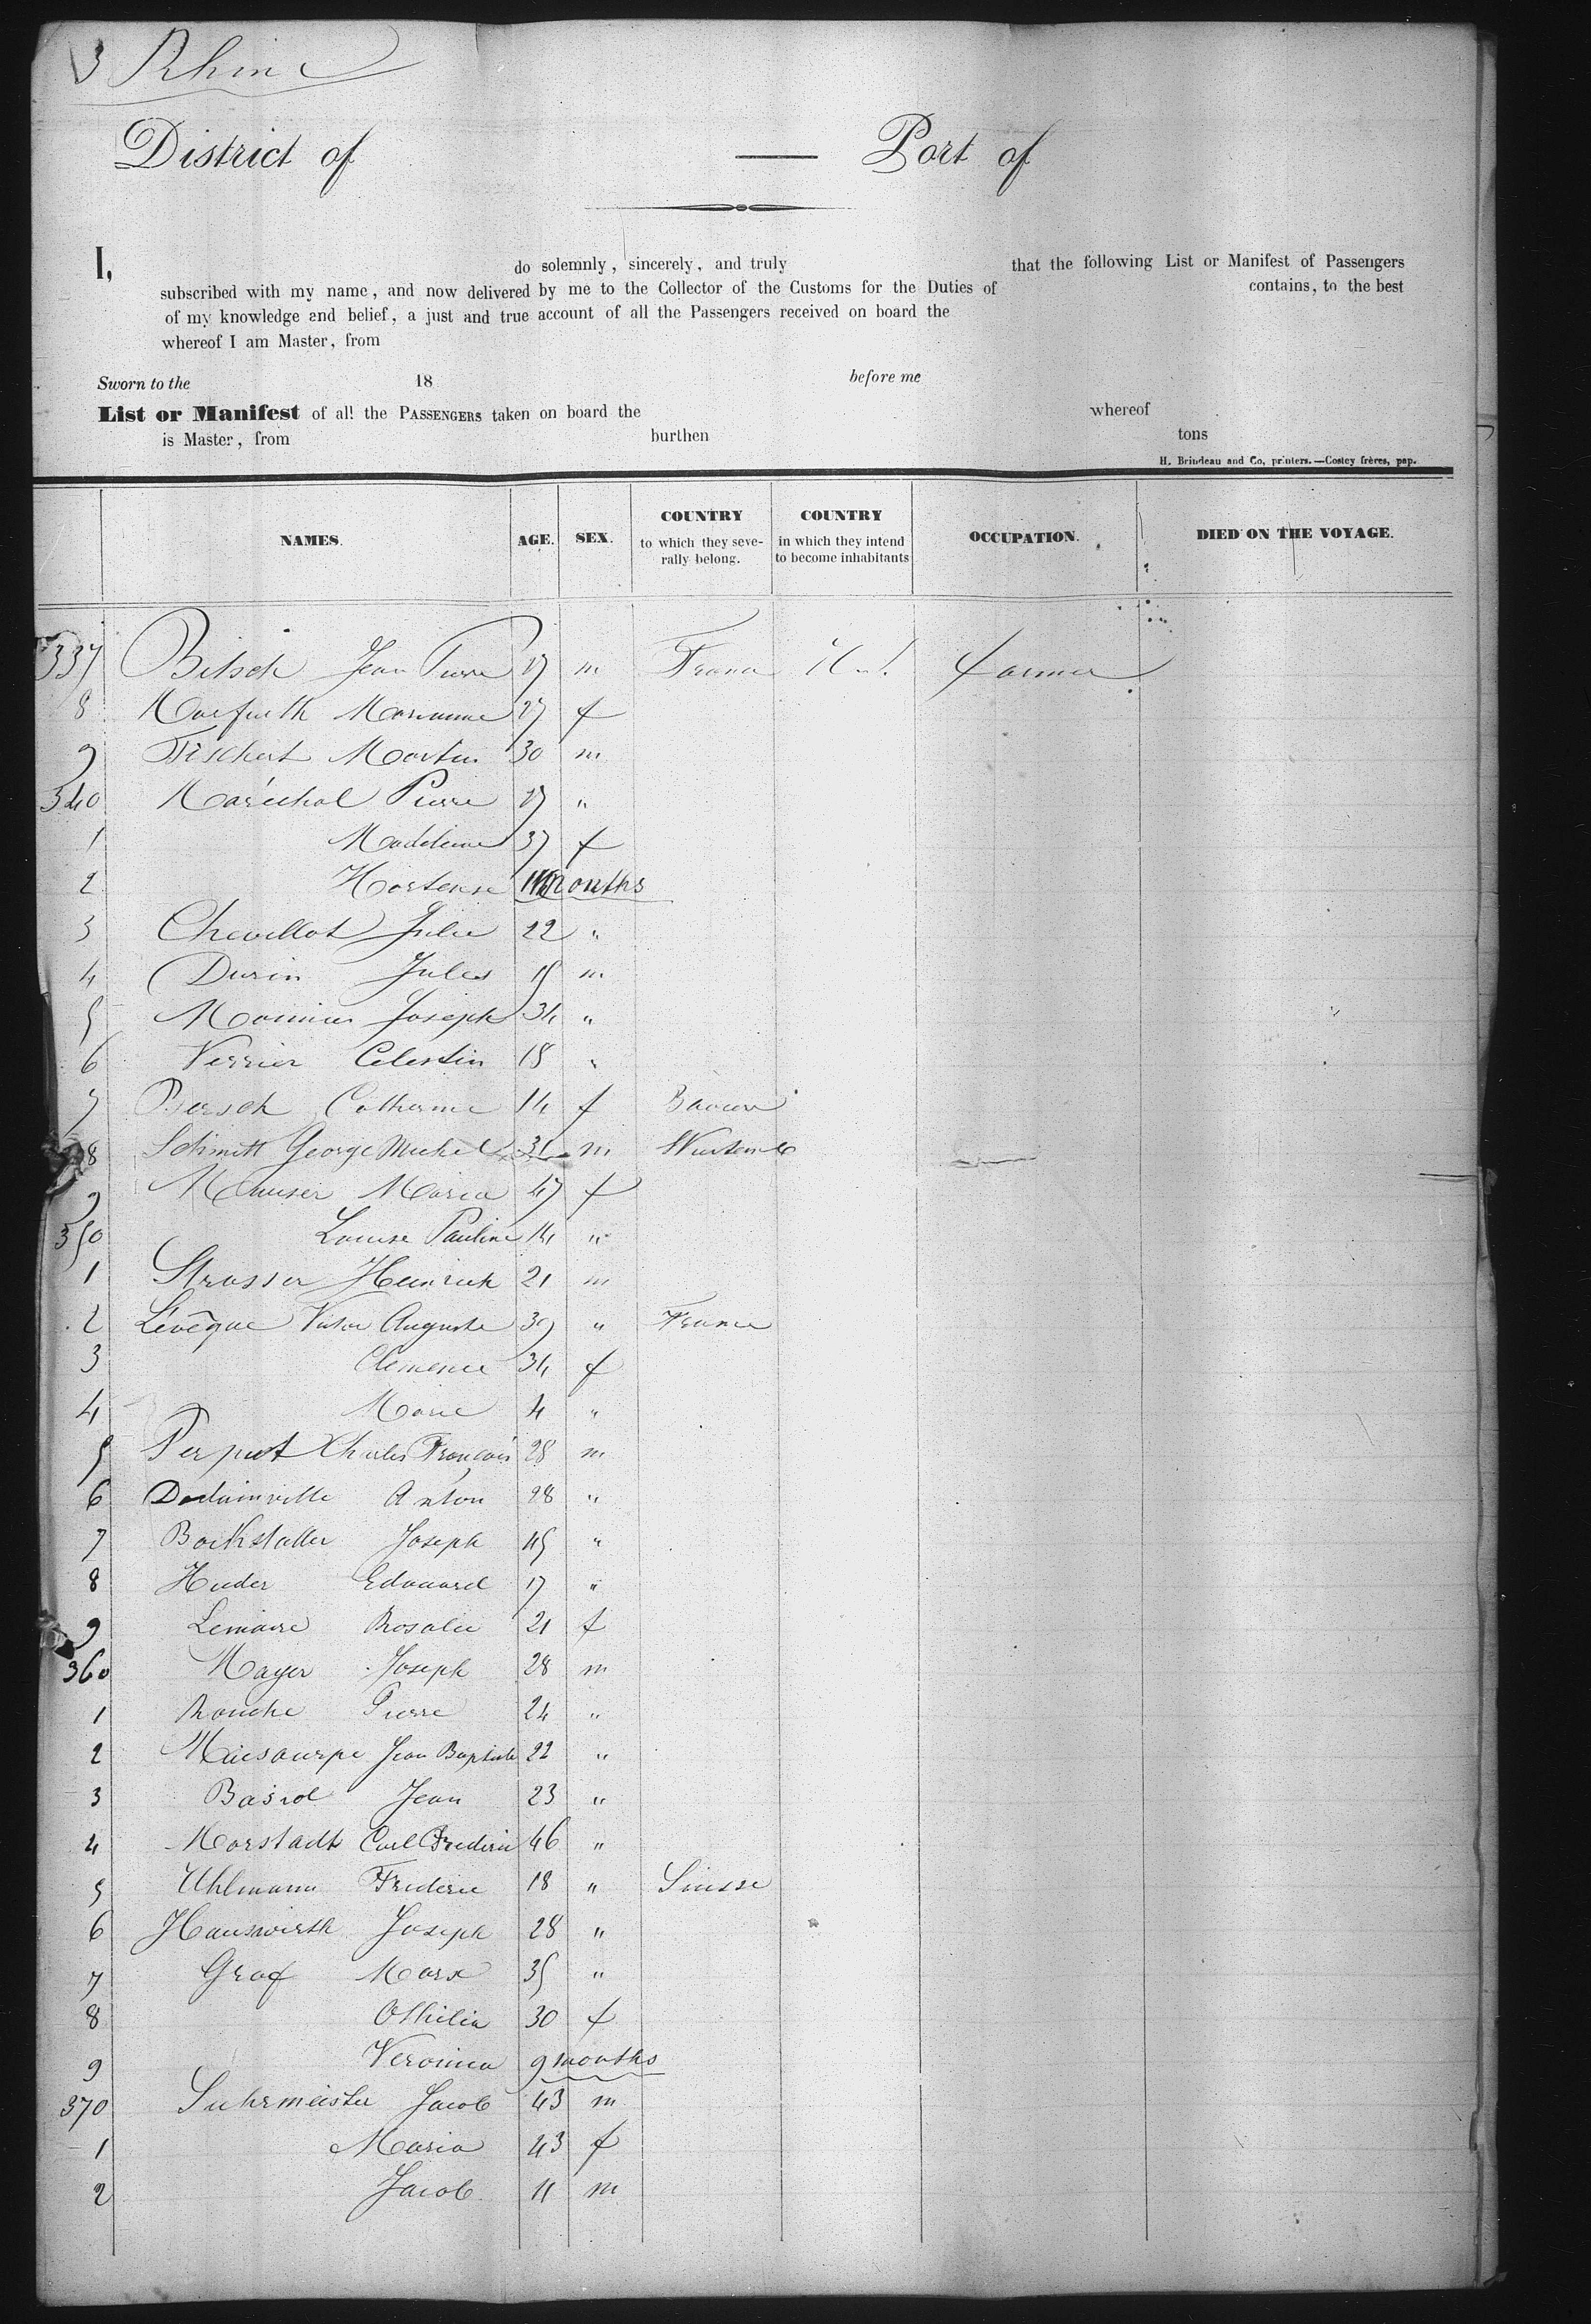 3 Rhine
District of — Port of
I, do solemnly, sincerely, and truly that the following List or Manifest of Passengers
subscribed with my name, and now delivered by me to the Collector of the Customs for the Duties of contains, to the best
of my knowledge and belief, a just and true account of all the Passengers received on board the
whereof I am Master, from
Sworn to the 18 before me
List or Manifest of all the PASSENGERS taken on board the whereof
is Master, from burthen tons
H. Brindeau and Co, printers.—Costey frères, pap.
NAMES. AGE. SEX. COUNTRY to which they severally belong. COUNTRY in which they intend to become inhabitants OCCUPATION. DIED ON THE VOYAGE.
337 Bitsch Jean Pierre m France farmer
8 Marianne 27 f
9 Martin 30 m
340 Maréchal Pierre "
1 Madeleine 37 f
2 Hortense months
3 Chevillot Julie 22 "
4 Durin Jules m
5 Joseph 34 "
6 Verrier Celestin 18 "
7 Bersch Catherine 14 f
8 Schmitt George Michel m
9 Mauser Maria 47 f
350 Louise Pauline 14 "
1 Strasser Heinrich 21 m
2 Lévêque Victor Auguste 39 " France
3 Clemence 34 f
4 Marie 4 "
5 Charles François 28 m
6 Anton 28 "
7 Joseph 45 "
8 Huder Edouard 17 "
9 Lemaire Rosalie 21 f
360 Mayer Joseph 28 m
1 Rouche Pierre 24 "
2 Jean Baptiste 22 "
3 Jean 23 "
4 Morstadt Carl Frederic 46 "
5 Uhlmann Frederic 18 " Suisse
6 Hauswirth Joseph 28 "
7 Graf Marx 35 "
8 Othilia 30 f
9 Veronica 9 months
370 Suhrmeister Jacob 43 m
1 Maria 43 f
2 Jacob 11 m